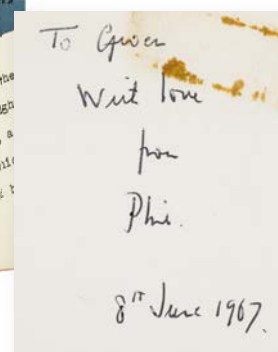 To Gwen
With love
from
Phil.
8th June 1967.